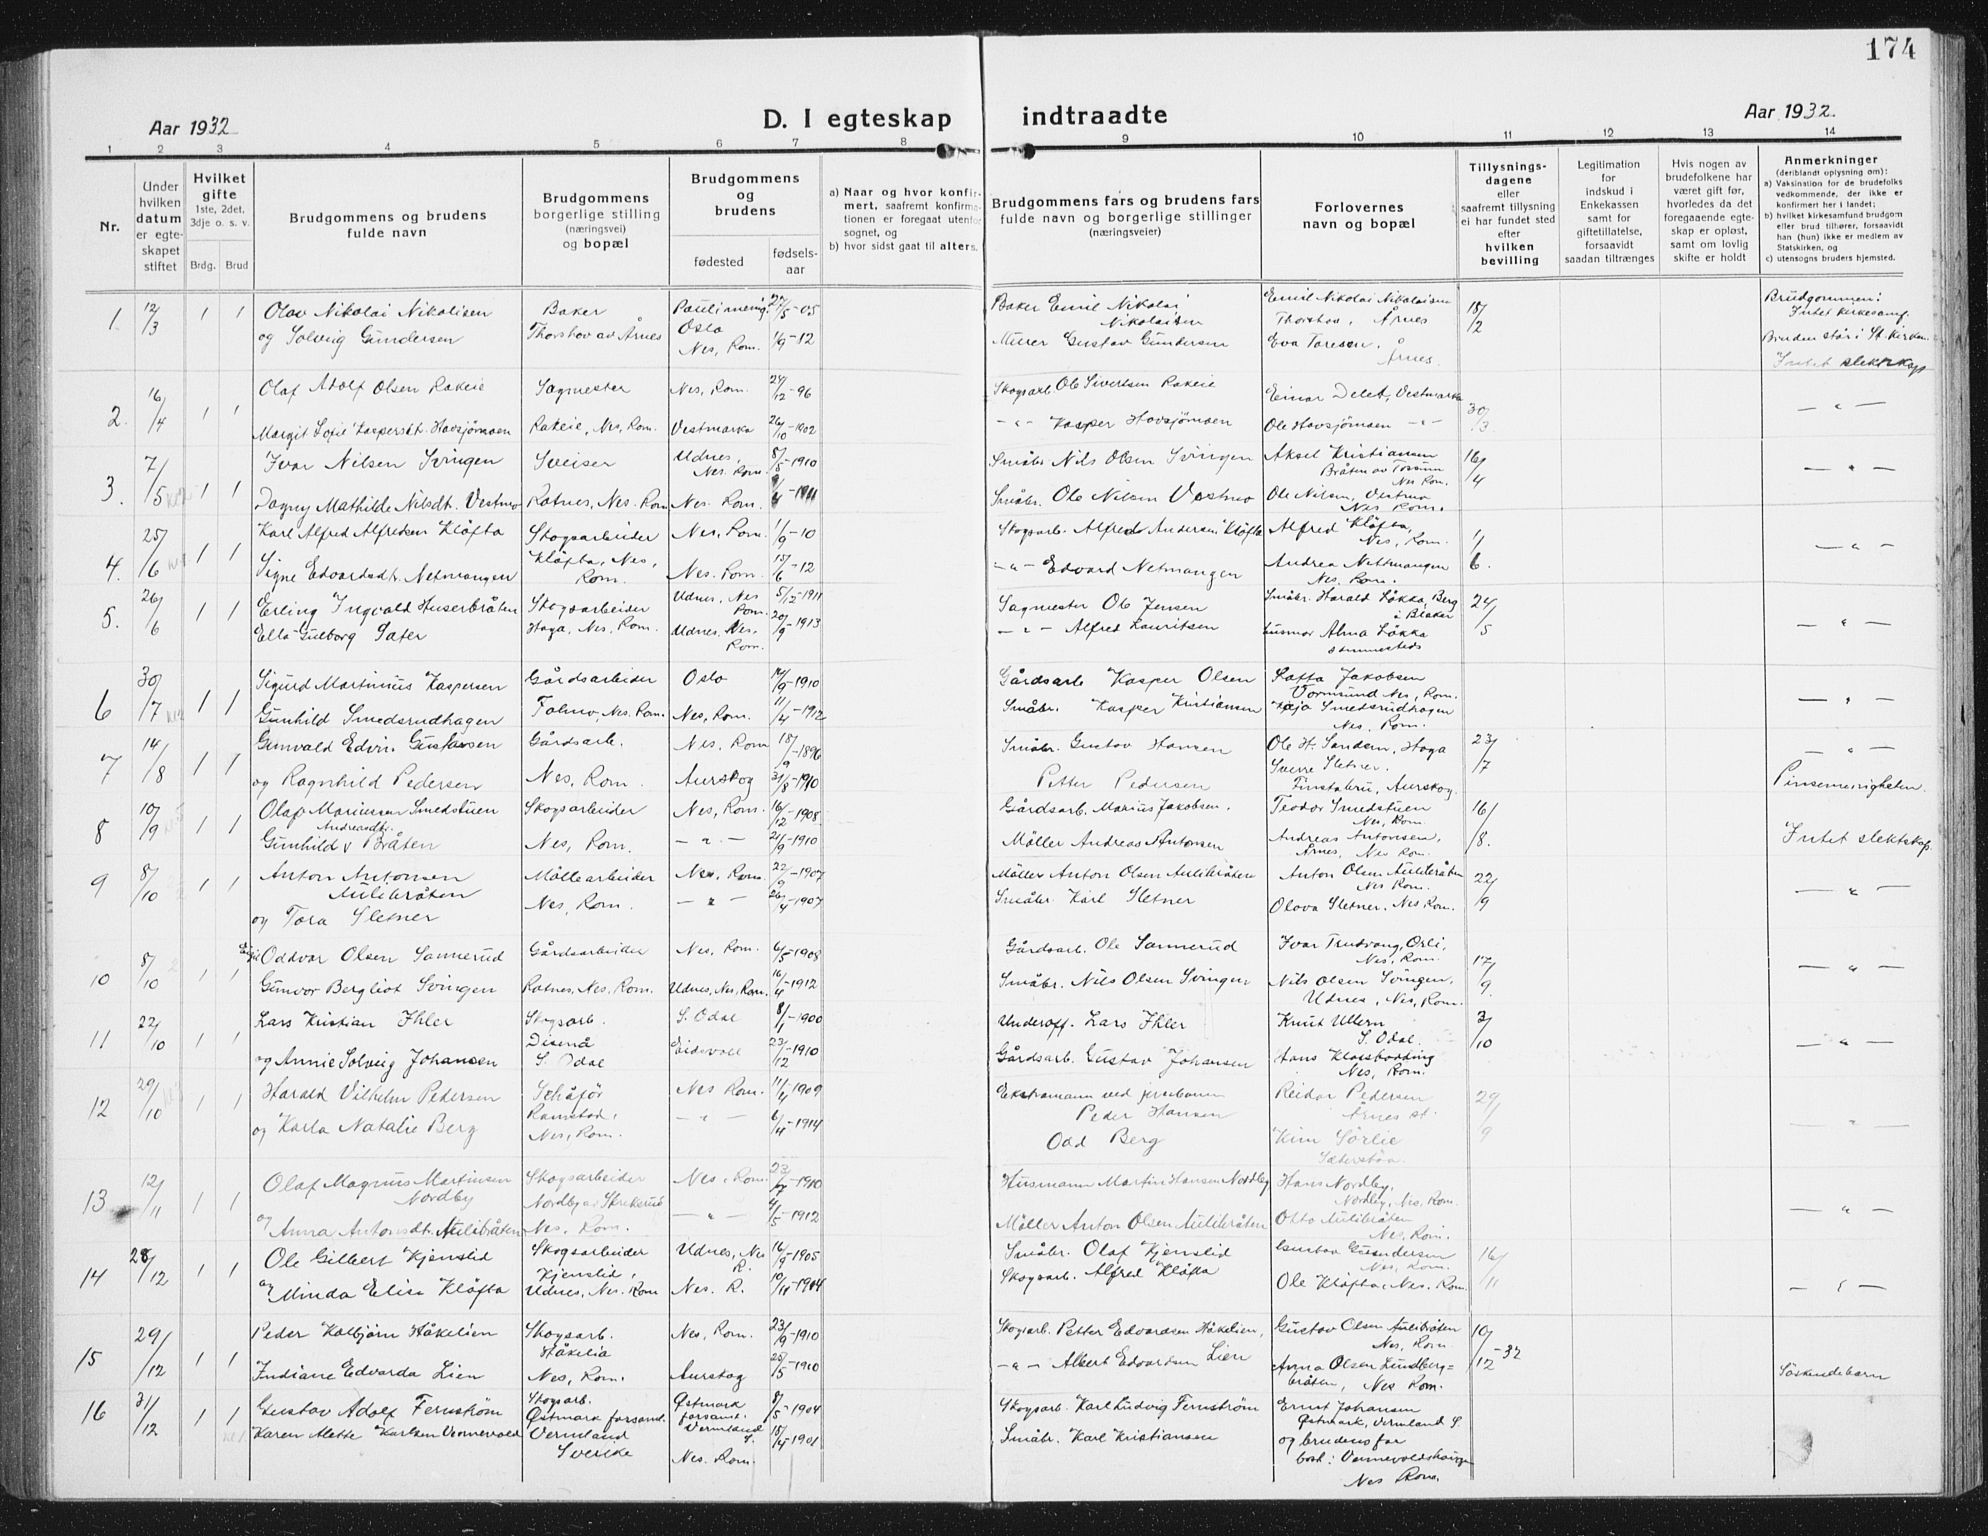 174
Aar 1932
D. I egteskap indtraadte
Aar 1932.
1 2 3 4 5 6 7 8 9 10 11 12 13 14
Nr.
Under hvilken datum er egte-skapet stiftet
Hvilket gifte
1ste, 2det, 3dje o. s. v.
Brdg. Brud
Brudgommens og brudens fulde navn
Brudgommens borgerlige stilling (næringsvei) og bopæl
Brudgommens og brudens
fødested
fødsels-aar
a) Naar og hvor konfir-mert, saafremt konfirma-tionen er foregaat utenfor sognet, og
b) hvor sidst gaat til alters.
Brudgommens fars og brudens fars fulde navn og borgerlige stillinger (næringsveier)
Forlovernes navn og bopæl
Tillysnings-dagene eller saafremt tillysning ei har fundet sted efter hvilken bevilling
Legitimation for indskud i Enkekassen samt for giftetillatelse, forsaavidt saadan tiltrænges
Hvis nogen av brudefolkene har været gift før, hvorledes da det foregaaende egte-skap er opløst, samt om lovlig skifte er holdt
Anmerkninger
(deriblandt oplysning om):
a) Vaksination for de brudefolks vedkommende, der ikke er konfirmert her i landet;
b) hvilket kirkesamfund brudgom eller brud tilhører, forsaavidt han (hun) ikke er medlem av Statskirken, og
c) utensogns bruders hjemsted.
1. 12/3 1 1 Olav Nikolai Nikolisen Baker 27/5-05 Baker Emil Nikolai Nikolaisen Emil Nikolai Nikolaisen Thorshov, Årnes 18/2 Brudgommen: Intet kirkesamf.
og Solveig Gundersen Thorshov av Årnes Oslo Nes, Rom. 1/9-12 Murer Gustav Gundersen Eva Toresen. Årnes. Bruden står i St. kirken.
Intet slektskap
2. 16/4 1 1 Olaf Adolf Olsen Rakeie Sagmester Nes, Rom. 24/12-96 Skogsarb. Ole Sivertsen Rakeie Einar Delet, Vestmarka 30/3 — " —
Margit Sofie Kaspersdt. Hovsjømoen Rakeie, Nes, Rom. Vestmarka 26/10-1902 — " — Kasper Hovsjømoen Ole Hovsjømoen — " —
3. 7/5 1 1 Ivar Nilsen Svingen Sveiser Udnes, Nes. Rom. 8/5-1910 Småbr. Nils Olsen Svingen Aksel Kristiansen Bråten av Tossum Nes Rom. 16/4 — " —
Dagny Mathilde Nilsdt. Vestmo Rotnes, Nes. Rom Nes. Rom. Småbr. Ole Nilsen Vestmo Ole Nilsen, Vestmo Nes Rom.
4. 25/6 1 1 Karl Alfred Alfredsen Kløfta Skogsarbeider Nes, Rom. 1/9-10 Skogsarb. Alfred Andersen Kløfta Alfred Kløfta, Nes, Rom. 1/6. — " —
Signe Edvardsdt. Netmangen Kløfta, Nes, Rom. Nes. Rom. 15/6-12 — " — Edvard Netmangen Andrea Nettmangen Nes. Rom.
5. 26/6 1 1 Erling Ingvald Huserbråten Skogsarbeider Udnes, Nes Rom. 5/12-1911 Sagmester Ole Jensen Småbr. Harald Løkka Berg i Blaker 24/5 — " —
Ella Gulborg Sater Haga, Nes, Rom. Udnes, Nes, Rom. 20/9-1913 — " — Alfred Lauritsen Husmor Alma Løkka sammesteds
6 30/7 1 1 Sigurd Martinius Kaspersen Gårdsarbeider Oslo 14/9-1910 Gårdsarb Kasper Olsen Jakobsen Vormsund Nes, Rom. — " —
Gunhild Smedsrudhagen Nes, Rom. Nes, Rom. 11/4-1912 Småbr. Kasper Kristiansen Kaja Smedsrudhagen Nes. Rom.
7 14/8 1 1 Gunvald Edvin Gustavsen Gårdsarb. Nes, Rom 18/9-1896 Småbr. Gustav Hansen Ole H. Sandem, Haga 23/7 — " —
og Ragnhild Pedersen Nes, Rom. Aurskog 31/8-1910 Petter Pedersen Sverre Sletner. Finstabru, Aurskog. Pinsemenigheten
8 10/9 1 1 Olaf Mariussen Smedstuen Skogsarbeider Nes, Rom. 16/12-1908. Gårdsarb. Marius Jakobsen. Teodor Smedstuen Nes, Rom. 16/8. Intet slektskap.
Gunhild Andreasdt. Bråten Nes, Rom. — " — 21/9-1910 Møller Andreas Antonsen Andreas Antonsen, Årnes, Nes Rom.
9 8/10 1 1 Anton Antonsen Aulibråten Møllearbeider Nes. Rom. 22/9-1907 Møller Anton Olsen Aulibråten Anton Olsen Aulibråten Nes Rom. 22/9 — " —
og Tora Sletner Nes, Rom. — " — 26/4-1907 Småbr. Karl Sletner Olava Sletner. Nes Rom.
10 8/10 1 1 Oddvar Olsen Sannerud Gårdsarbeider Nes, Rom. 6/5-1908 Gårdsarb. Ole Sannerud Ivar Trusvang, Orli, Nes, Rom. 17/9. — " —
Gunvor Bergliot Svingen Rotnes, Nes, Rom. Udnes, Nes, Rom. 16/4-1912 Småbr. Nils Olsen Svingen Nils Olsen Svingen, Udnes, Nes, Rom.
11 22/10 1 1 Lars Kristian Ihler Skogsarb. S. Odal 8/1-1900 Underoff. Lars Ihler Knut Ullern S. Odal. 3/10 — " —
og Annie Solveig Johansen Disenå S. Odal Eidsvoll 23/12-1910 Gårdsarb. Gustav Johansen Hans Klossbødding Nes, Rom.
12 29/10 1 1 Harald Vilhelm Pedersen Schåfør Nes Rom. 11/4-1909 Ekstramann ved jernbanen Peder Hansen Reidar Pedersen Årnes st. 29/9 — " —
og Karla Natalie Berg Ramstad, Nes, Rom. — " — 6/4-1914 Odd Berg Kim Sørlie Sæterstøa.
13 12/11 1 1 Olaf Magnus Martinsen Nordby Skogsarbeider Nes, Rom. 23/7-1910 Husmann Martin Hansen Nordby Hans Nordby, Nordby, Nes, Rom. — " —
og Anna Antonsdt. Aulibråten Nordby av Nes. Rom. — " — 4/5-1912 Møller Anton Olsen Aulibråten Otto Aulibråten Nes, Rom.
14 28/12 1 1 Ole Gilbert Kjenslid Skogsarbeider Udnes, Nes R. 16/9-1905 Småbr. Olaf Kjenslid Gustav Gundersen Nes, Rom. 16/11 — " —
og Minda Elise Kløfta Kjenslid, Udnes, Nes. Rom Nes. R. 10/11-1904 Skogsarb. Alfred Kløfta Ole Kløfta, Nes. Rom.
15 29/12 1 1 Peder Kolbjørn Håkelien Skogsarb. Håkelia Nes, Rom. 23/9-1910 Skogsarb. Petter Edvardsen Håkelien, Gustav Olsen Aulibråten Nes, Rom. 10/12-32
Indiane Edvarda Lien Nes, Rom. Aurskog 25/5-1910 — " — Albert Edvardsen Lien Anna Olsen Lundberg=bråten, Nes Rom. Søskendebarn
16 31/12 1 1 Gustav Adolf Fernstrøm Skogsarb. Østmark forsaml. Østmark forsaml. Vermland S. 8/5-1904 Skogsarb. Karl Ludvig Fernstrøm Ernst Johansen Østmark, Vermland S.
Karen Mette Karlsen Vermevold Vermland Sverike Nes. Rom. -1901 Småbr. Karl Kristiansen og brudens far bost: Vermevoldshaugen Nes Rom.